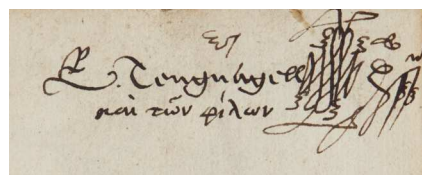 E. Tengnagell
καὶ τῶν φίλων